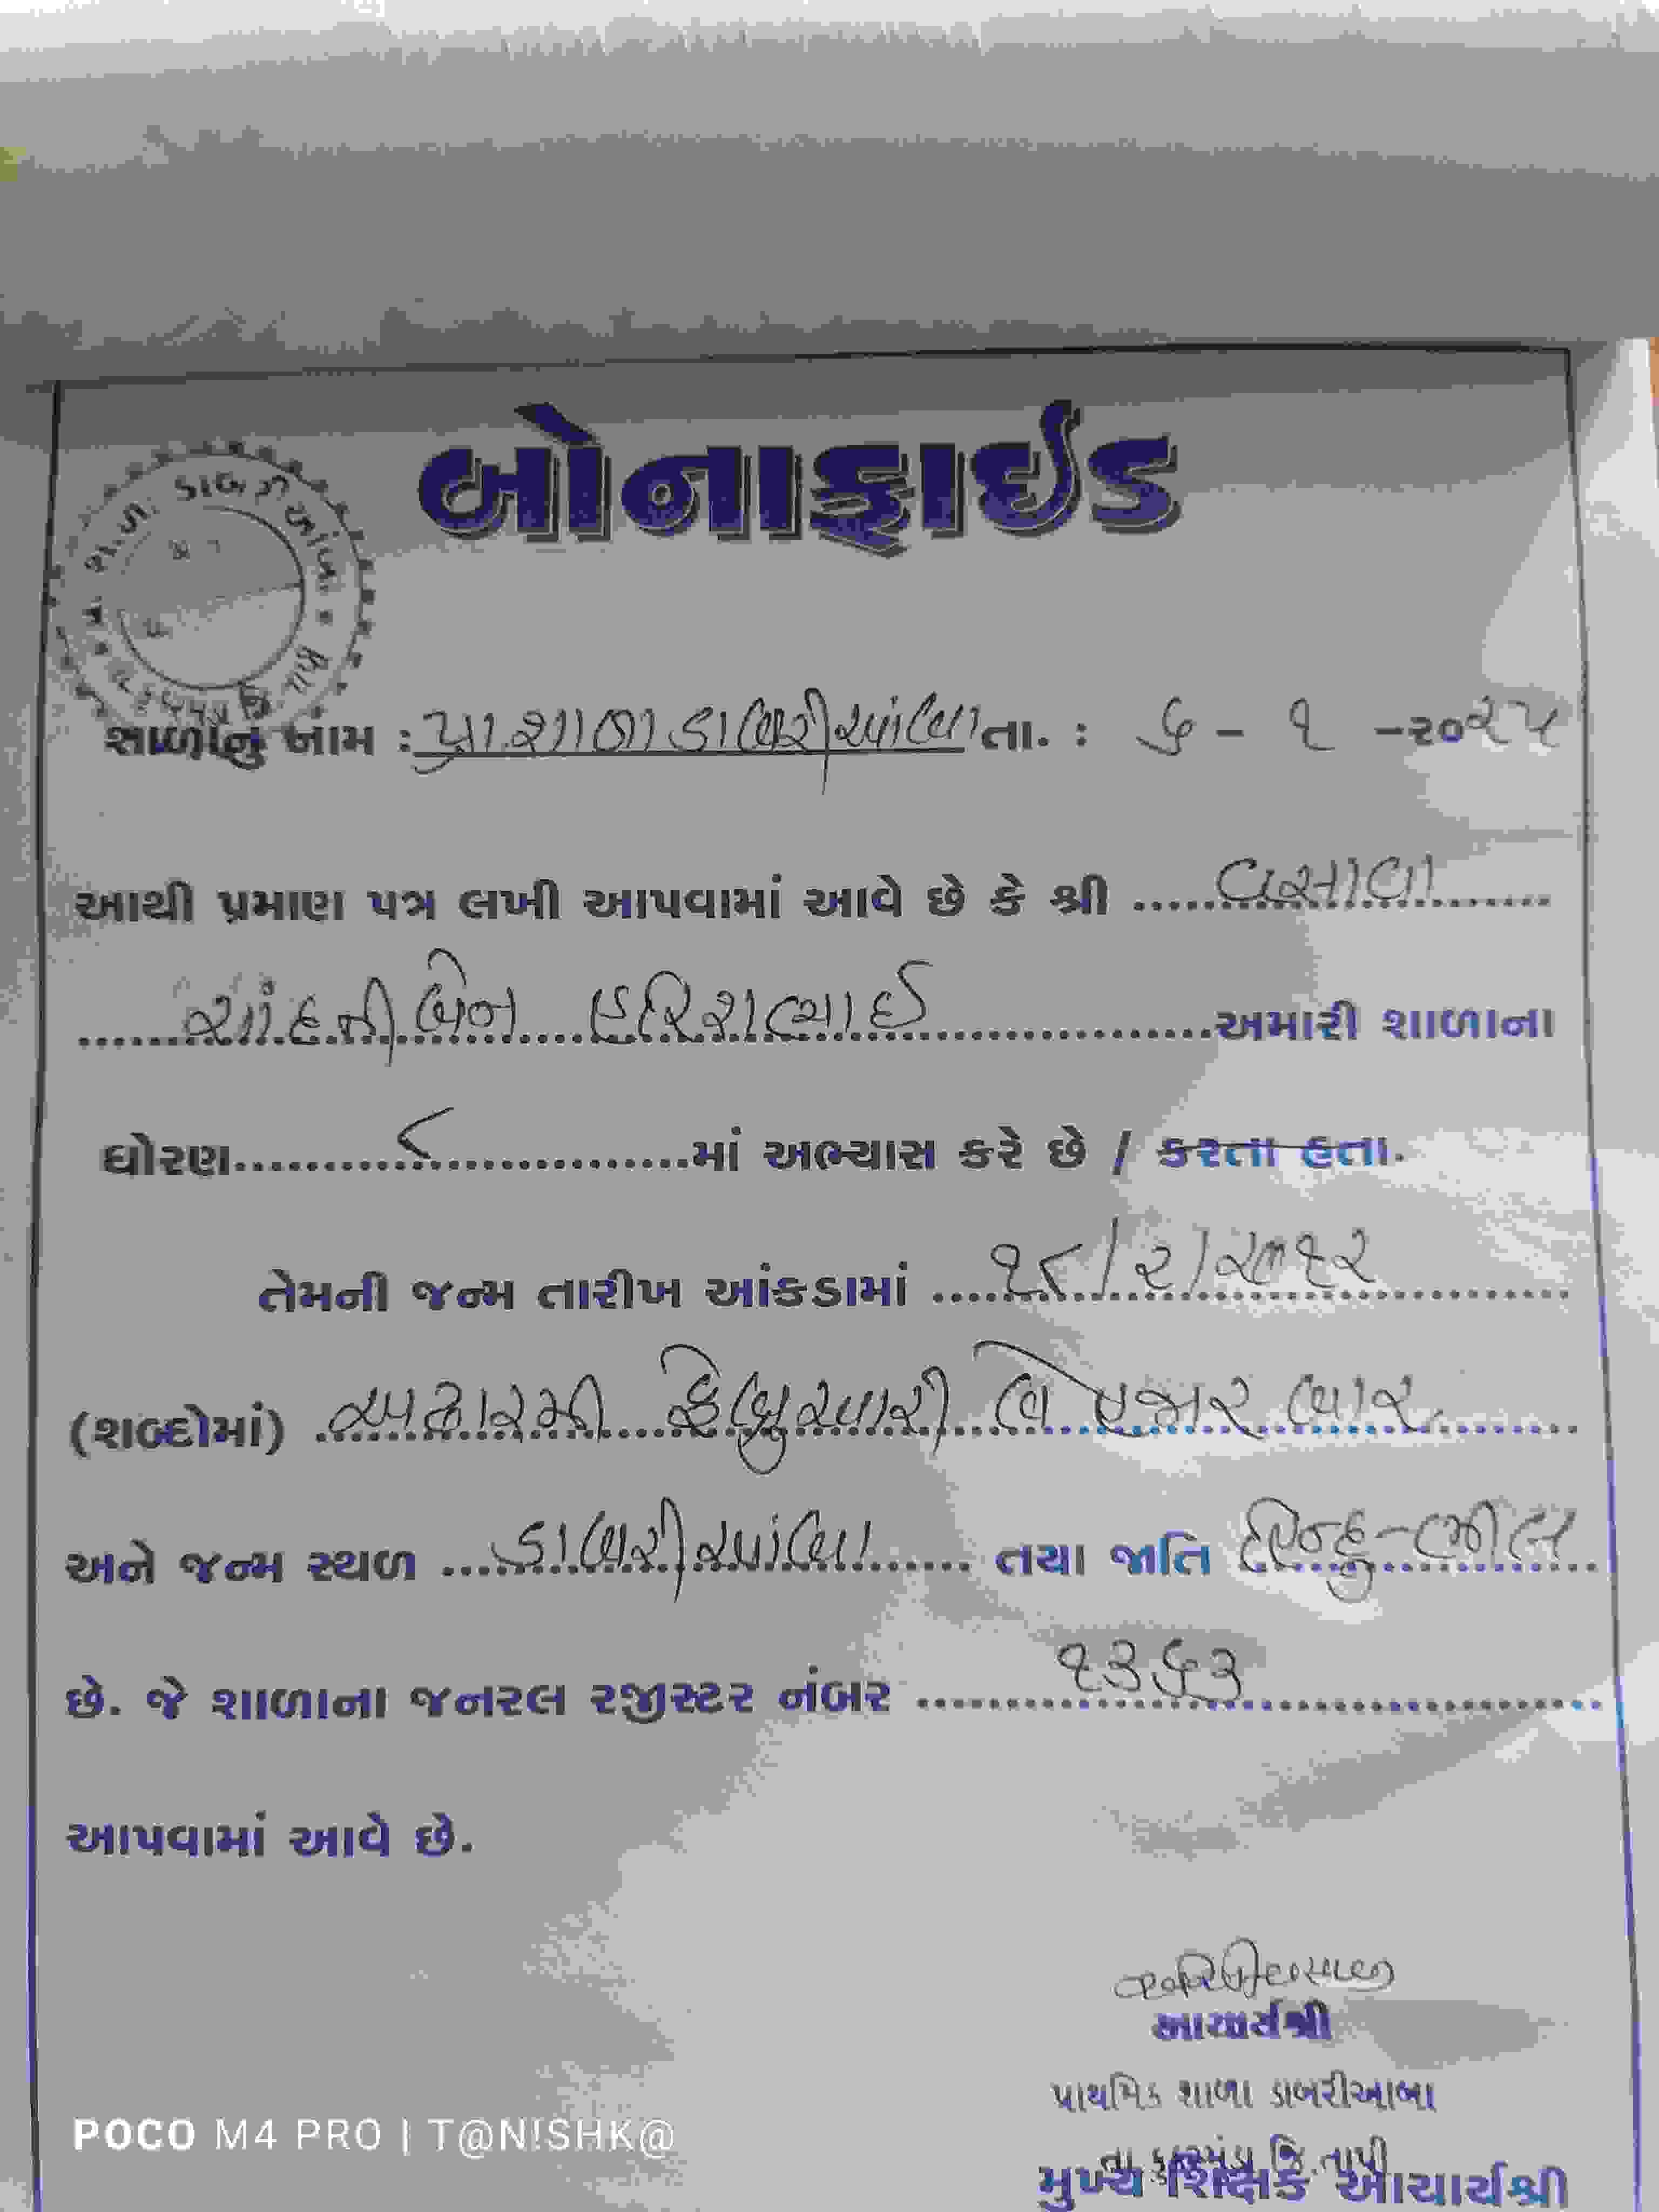 બોનાફાઇડ
ડાબરીઆંબા
શાળાનું નામ : પ્રા.શાળા ડાબરીઆંબા તા. : ૬ - ૧ -૨૦૨૫
આથી પ્રમાણ પત્ર લખી આપવામાં આવે છે કે શ્રી ..... વસાવા .....
..... ચાંદનીબેન .... હરિશભાઈ ..... અમારી શાળાના
ધોરણ ..... ૮ ..... માં અભ્યાસ કરે છે / કરતા હતા.
તેમની જન્મ તારીખ આંકડામાં ..... ૧૮/૨/૨૦૧૨ .....
(શબ્દોમાં) અઢારમી ફેબ્રુઆરી બે હજાર બાર
અને જન્મ સ્થળ ..... ડાબરીઆંબા ..... તથા જાતિ હિન્દુ-ભીલ
છે. જે શાળાના જનરલ રજીસ્ટર નંબર ..... ૧૩૬૩ .....
આપવામાં આવે છે.
આચાર્યશ્રી
પ્રાથમિક શાળા ડાબરીઆંબા
તા કુકરમુંડા જિ.તાપી
મુખ્ય શિક્ષક આચાર્યશ્રી
POCO M4 PRO | T@N!SHK@